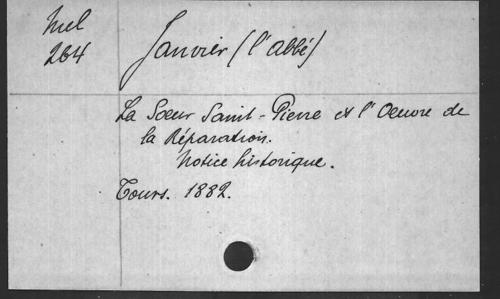 Mel
264
Janvier (l'abbé)
La Sœur Saint-Pierre et l'Oeuvre de
la Réparation.
Notice historique.
Tours. 1882.